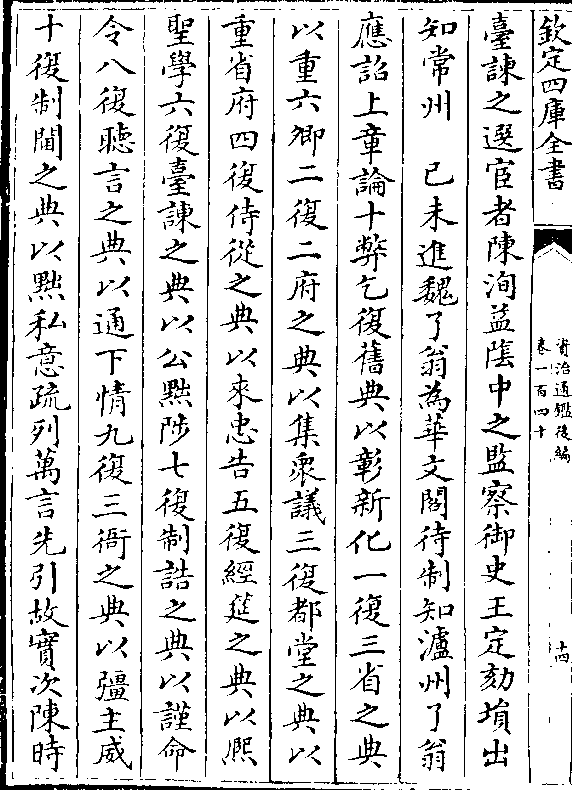 欽定四庫全書
資治通鑑後編
卷一百四十
十四
臺諫之選宦者陳洵益隂中之監察御史王定劾塤出
知常州 已未進魏了翁為華文閣待制知瀘州了翁
應詔上章論十弊乞復舊典以彰新化一復三省之典
以重六卿二復二府之典以集衆議三復都堂之典以
重省府四復侍從之典以來忠告五復經筵之典以熈
聖學六復臺諫之典以公黜陟七復制誥之典以謹命
令八復聽言之典以通下情九復三衙之典以彊主威
十復制閫之典以黜私意疏列萬言先引故實次陳時